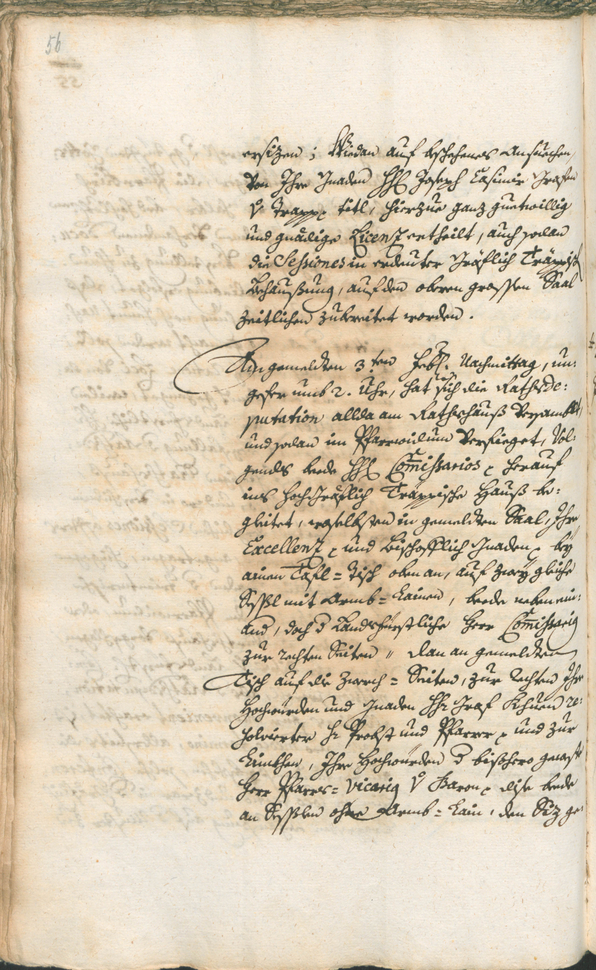 56
ersizen; Widan auf beschehenes Ansuechen,
von Ihro Gnaden HH Joseph Casimir Grafen
V Trapp titl, hierzue ganz guetwillig
und gnädige Licenz ertheilt, auch sodan
die Sessiones in erdeuter Gräflich Trappisch
Behaußung, auf den oberen grossen Saal
zeitlichen zubereitet worden.
An gemelden 3ten Febr. Nachmitag, un:
gefer umb 2. Uhr, hat sich die Rathsde:
putation allda am Rathshauß versamblt
und sodan im Pfarrwidum verfieget, vol:
gends beede HH Comissarios herauf
ins Hochgräflich Trappische Hauß be:
gleitet, woselbsten in gemelden Saal, Ihro
Excellenz und Bischofflich Gnaden bey
ainen Tafl=Tisch oben an, auf zwey gleiche
Sessl mit Armb=Lainen, beede neben ein:
and, doch d Landsfürstliche Herr Comissarig
zur rechten Seiten, dan an gemelden
Tisch auf die Zwerch=Seiten, zur rechten Ihro
Hochwürden und Gnaden HH Graf Khuen re:
solvierter H. Probst und Pfarrer und zur
Linkhen, Ihro Hochwürden d bishero gewest
Herr Pfarrs=Vicarig V Baron, dise beede
an Sesslen ohne Armb=Lain, den Siz ge: